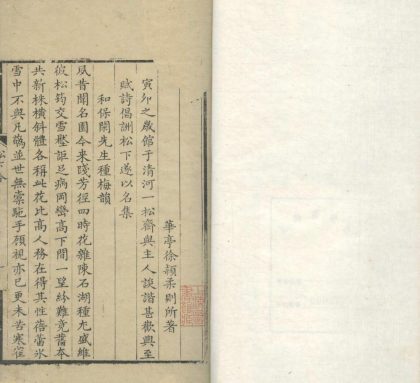 華亭徐穎柔則所著
寅卯之歲館于清河一松齋與主人談諧甚歡興至
賦詩倡訓松下遂以名集
和保閒先生種梅韻
夙昔聞名園今來踐芳徑四時花雜陳石湖種尤盛維
彼松筠交雪壑詎乏病岡巒高下間一望紛難竟舊本
共新株橫斜體各稱此花比高人務在得其性蓓蕾氷
雪中不與凡驚並世無索馳手顧視亦已更未苦寒